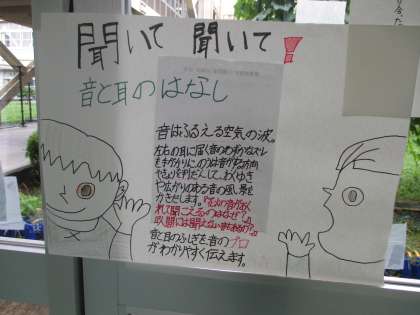 聞いて 聞いて!
音と耳のはなし
音はふるえる空気の波。
左右の耳に届く音のわずかなズレ
を手がかりに、ヒトは音が来る方向
やきょりを判だんして、おくゆき
やひろがりのある音の風景を
かきだします。『花火の音がおく
れて聞こえるのはなぜ?』
『人間には聞えない音もあるの?』
音と耳のふしぎを音のプロ
がわかりやすく伝えます。